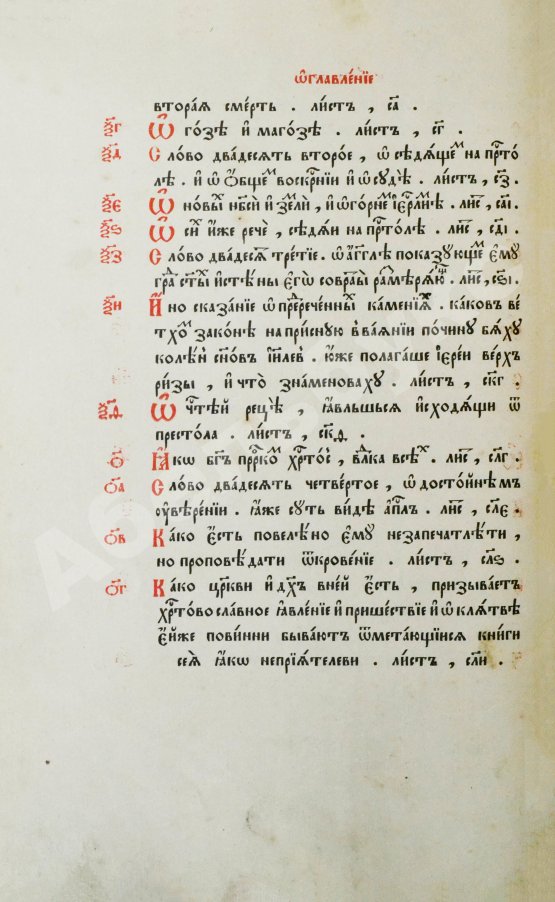 ѡ҆главле́нїе
вторая сме́рть . ли́стъ , са҃ .
ѯ҃г Ѡ го́зѣ и҆ маго́зѣ . ли́стъ , сг҃ .
ѯ҃д Сло́во два́десять второ́е , ѡ҆ сѣдѧ́щемъ на прⷭ҇то
лѣ . и҆ ѡ҆ о҆́бщемъ воскрⷭ҇нїи и҆ ѡ҆ сꙋдѣ̀ . ли́стъ , сз҃ .
ѯ҃є Ѡ но́вых нб҃си и҆ землѝ , и҆ ѡ҆ го́рнемъ і҆ерⷭ҇ли́мѣ . ли́с , саі҃ .
ѯ҃ѕ Ѡ сих и҆́же речѐ , сѣдѧ́и на прⷭ҇то́лѣ . ли́с , сді҃ .
ѯ҃з Сло́во два́десят тре́тїе . ѡ҆ а҆́гг҃лѣ показꙋющемъ є҆мꙋ̀
гра́д ст҃ы́й и҆ стѣ́ны є҆гѡ̀ совра́ты размѣрѧ́ющ . ли́с , сѕі҃ .
ѯ҃и И҆́но сказа́нїе ѡ҆ пре́дречен́ных ка́менїих . ка́ков в ве́
тхом зако́нѣ на при́снꙋю в ваѧ́нїи по чи́нꙋ бѧ́хꙋ
колѣ́н сн҃о́в і҆и҃лев . ю҆́же полага́ше і҆ере́и ве́рхъ
ри́зы , и҆ что̀ зна́меноваху . ли́стъ , скг҃ .
ѯ҃ѳ Ѡ чⷭ҇тѣ́й рецѣ̀ , ꙗ҆́вльшьсѧ и҆сходѧ́щи ѿ
престо́ла . ли́стъ , скд҃ .
о҃ Ꙗ҆́ко бг҃ъ прⷪ҇ро́комъ хрⷭ҇то́с , влⷣка всѣ́х . ли́с , слг҃ .
о҃а Сло́во два́десять четве́ртое , ѡ҆ досто́йнѣмъ
ᲂу҆вѣ́ренїи . ꙗ҆́же сꙋть ви́дѣ а҆п҃лъ . ли́с , слє҃ .
о҃в Ка́ко є҆́сть повелѣ́но є҆мꙋ̀ незапечатлѣ́ти ,
но проповѣ́дати ѿкрове́нїе . ли́стъ , слѕ҃ .
о҃г Ка́ко цр҃кви и҆ дх҃ъ в не́й є҆́сть , призыва́етъ
хрⷭ҇то́во сла́вное ꙗ҆вле́нїе и҆ прише́ствїе и҆ ѡ҆ клѧ́твѣ
є҆́йже пови́нни быва́ютъ ѿмета́ющїисѧ кни́ги
сеѧ̀ ꙗ҆́ко непрїѧ́телеви . ли́стъ , сли҃ .